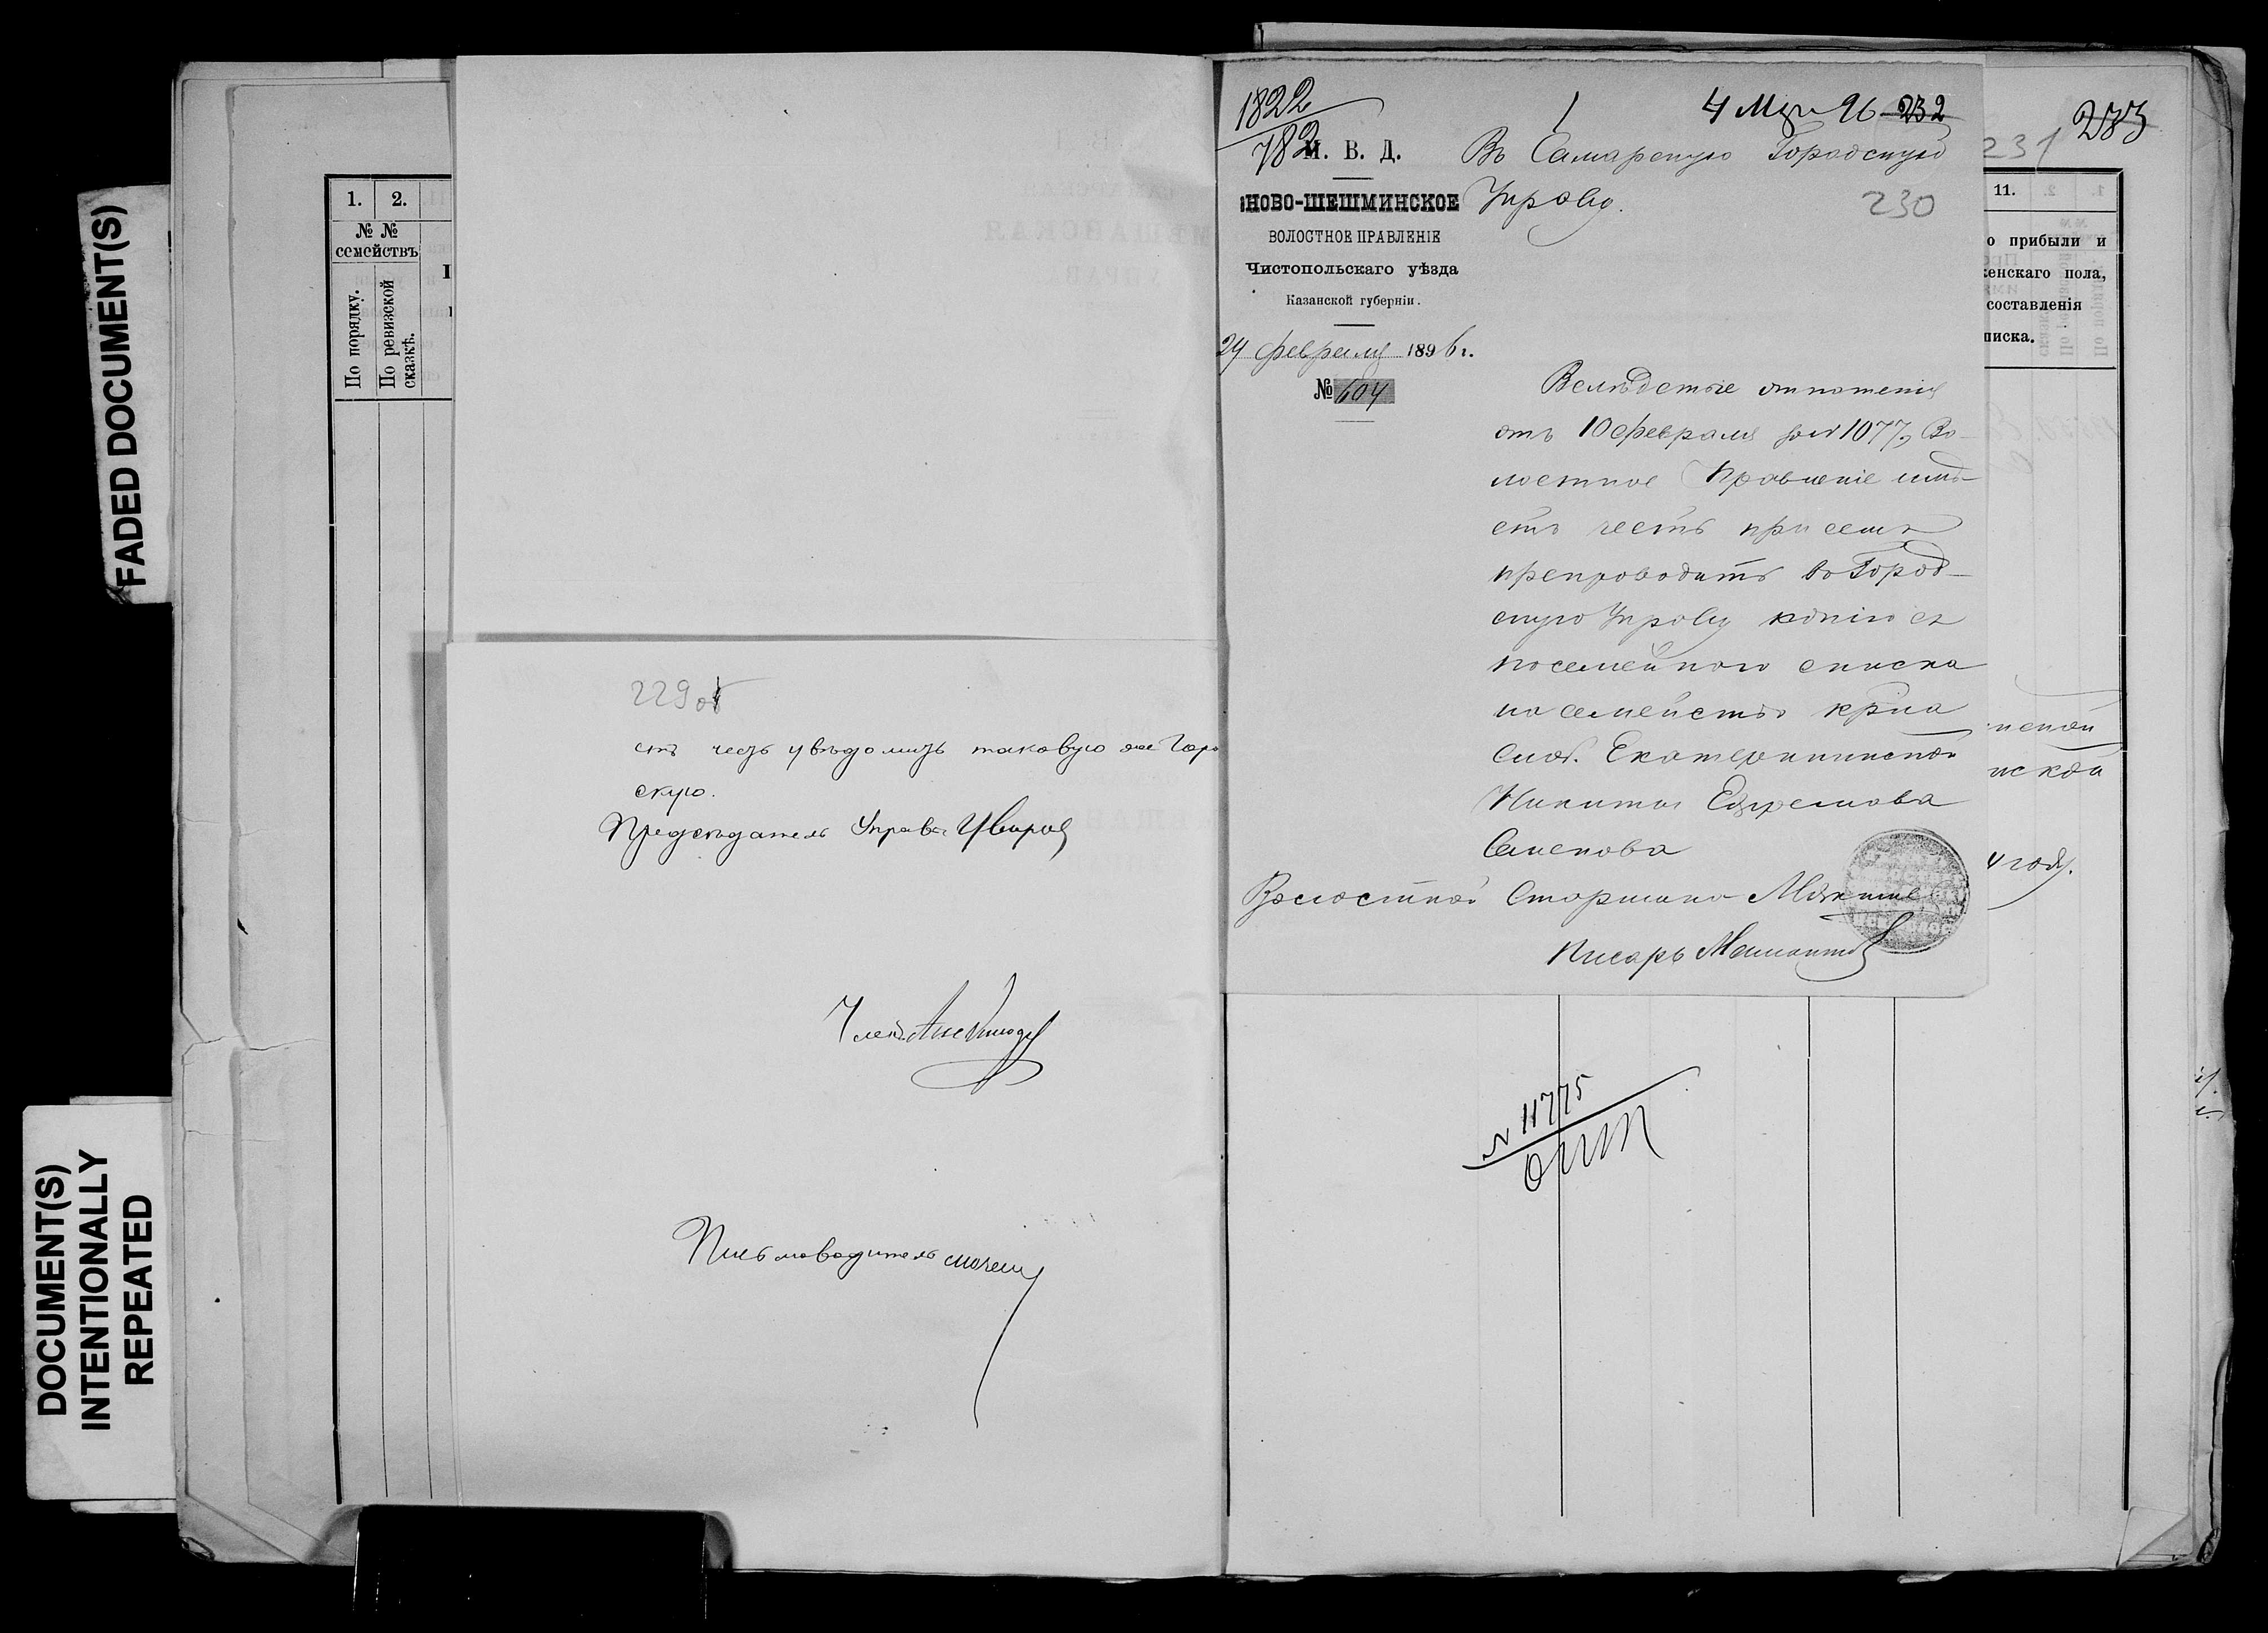 FADED DOCUMENT(S)
DOCUMENT(S)
INTENTIONALLY
REPEATED
1. 2.
№ №
семействъ
По порядку.
По ревизской
сказкѣ.
229 об
етъ честь увѣдомить таковую же Горо
скую.
Предсѣдатель Управы
Членъ
Письмоводитель
1822
782
4 Мар 96 232
233
231
230
М. В. Д.
НОВО-ШЕШМИНСКОЕ
ВОЛОСТНОЕ ПРАВЛЕНІЕ
Чистопольскаго уѣзда
Казанской губерніи.
29 февраля 1896 г.
№ 604
Въ Самарскую Городскую
Управу.
Вслѣдствіе отношенія
отъ 10 февраля за № 1077, Во-
лостное Правленіе имѣ-
етъ честь при семъ
препроводить въ Город-
скую Управу копію съ
посемейнаго списка
на семейство кр-на
слоб. Екатерининской
Никиты Ефремова
Семенова
Волостной Старшина
Писарь Мамонтов
11.
о прибыли и
енскаго пола,
составленія
писка.
нской
году.
№ 11775